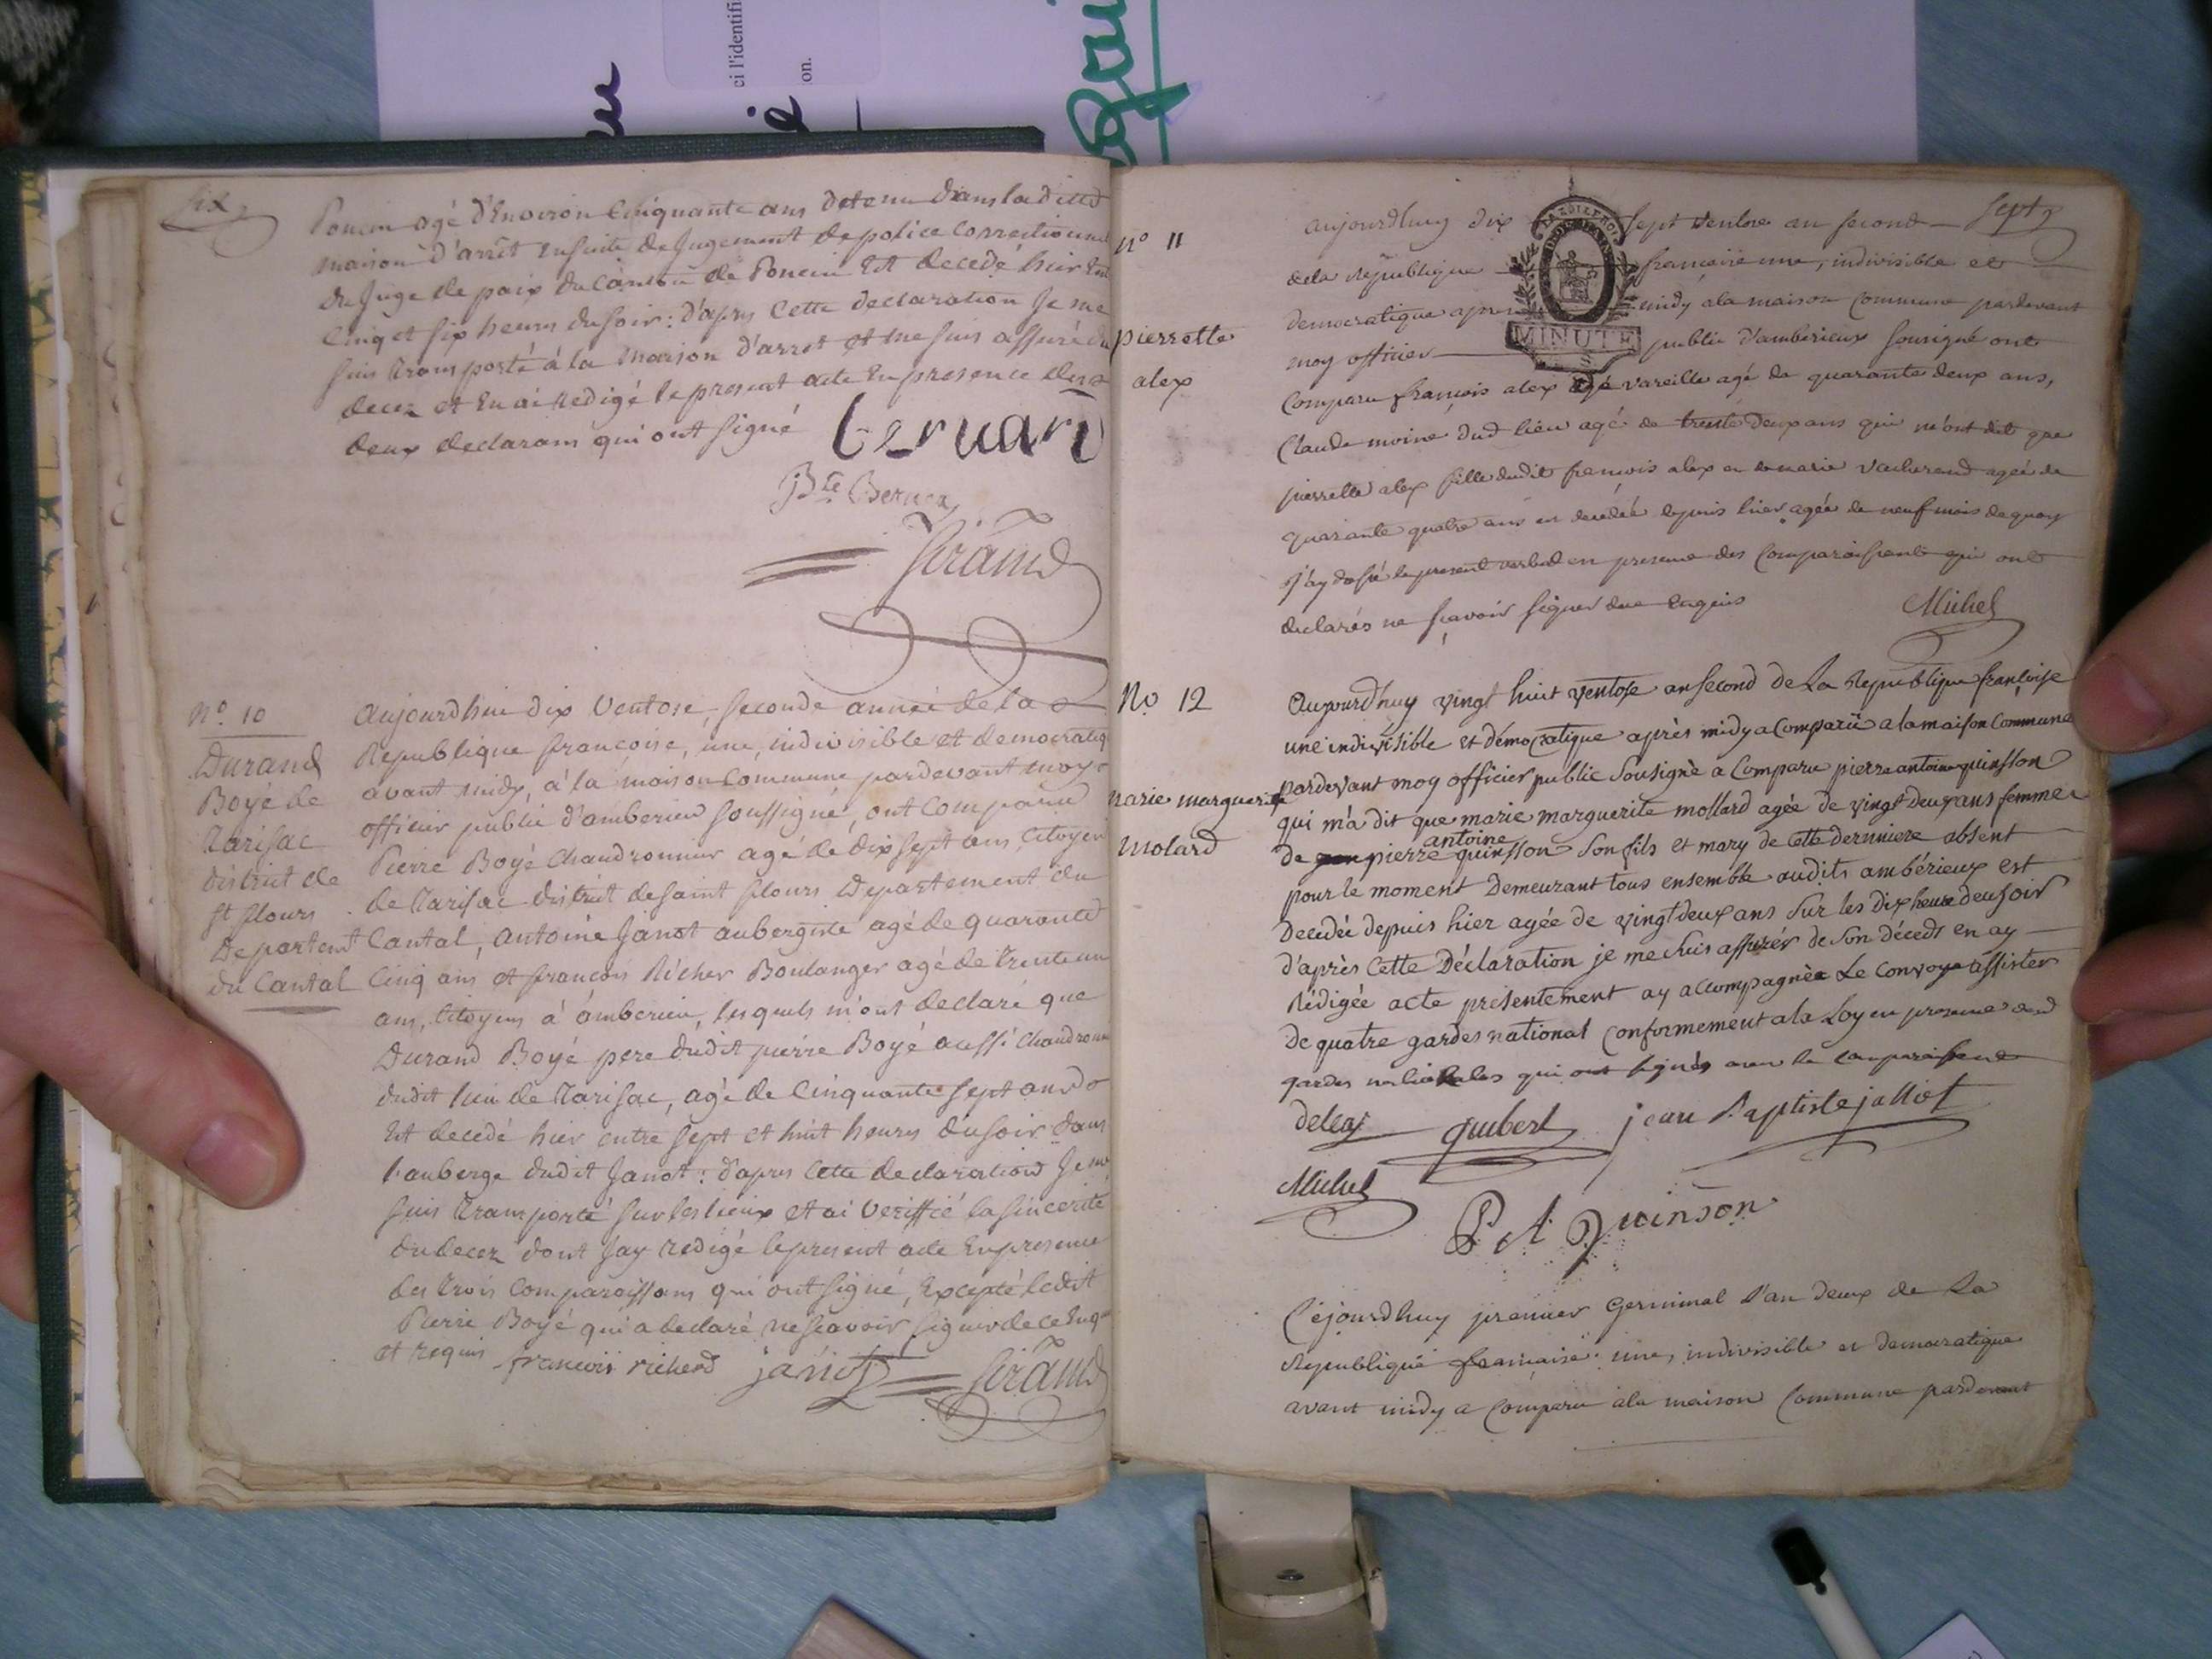 ci l'identifi
on.
six
Poncin agé d'Environ Cinquante ans detenu dans la ditte
maison d'arrêt Ensuite de Jugement de police Correctionnel
du Juge de paix du Canton de Poncin Est decedé hier Entre
Cinq et six heures du soir : d'après Cette declaration Je me
suis transporté à la maison d'arrest et me suis assuré du
decez et En ai Redigé le present acte En presence des
deux declarans qui ont signé
Giraud
N.º 10
Durand
Boyé de
Narisac
district de
st flours
Departemt
du Cantal
Aujourdhui dix Ventose, seconde année de la
Republique francoise, une, indivisible et democratiq
avant midy, à la maison Commune pardevant moy
officier public d'amberieu soussigné, ont Comparu
Pierre Boyé Chaudronnier agé de dix sept ans, Citoyen
de Narisac district de saint flours Departement du
Cantal, Antoine Janot aubergiste agé de quarante
Cinq ans et francois Richer Boulanger agé de trente un
ans, Citoyens à amberieu, lesquels m'ont declaré que
Durand Boyé pere dudit pierre Boyé aussi Chaudronn
dudit lieu de Narisac, agé de Cinquante sept ans
Est decedé hier entre sept et huit heures du soir dans
l'auberge dudit Janot : d'apres Cette declaration Je me
suis transporté sur les lieux et ai veriffié la sincerité
du decez dont Jay redigé le present acte En presence
des trois Comparaissans qui ont signé, Excepté ledit
Pierre Boyé qui a declaré ne scavoir signer de ce Enq
et requis francois richerd janot Giraud
sept
N.º 11
pierrette
alex
aujourdhuy dix sept ventose an second
dela Republique francaise une, indivisible et
democratique apres midy ala maison Commune pardevant
moy officier public d'amberieux sousigné ont
MINUTE
Comparu francois alex vareille agé de quarante deux ans,
Claude moine dud lieu agé de trente deux ans qui m'ont dit que
pierrette alex fille dudit francois alex et de marie vacherend ageé de
quarante quatre ans est decedée depuis hier agée de neuf mois de quoy
j'ay dressé le present verbal en presence des Comparaissents qui ont
declarés ne scavoir signer de ce Enquis
Michel
No 12
marie marguerite
Molard
Aujourdhuy vingt huit ventose an second de La Republique françoise
une indivisible et démocratique après midy a Comparü a la maison Commune
pardevant moy officier public Sousigné a Comparu pierre antoine quinsson
qui m'a dit que marie marguerite mollard agée de vingt deux ans femme
antoine
de pierre quinsson son fils et mary de cette derniere absent
pour le moment Demeurant tous ensemble audits ambérieux est
Decedée depuis hier agée de vingt deux ans sur les dix heure deu soir
d'après cette Déclaration je me suis assurér de son décedt en ay
Rédigée acte présentement ay accompagnèe Le Convoye assister
de quatre gardes national conformement a la Loy en presence desd
gardes nationales qui ont signés avec le comparaissent
deley guibert jean Baptiste jalliot
Michel
P A quinson
Cejourdhuy premier Germinal l'an deux de La
Republique francaise une, indivisible et democratique
avant midy a Comparu ala maison Commune pardevant